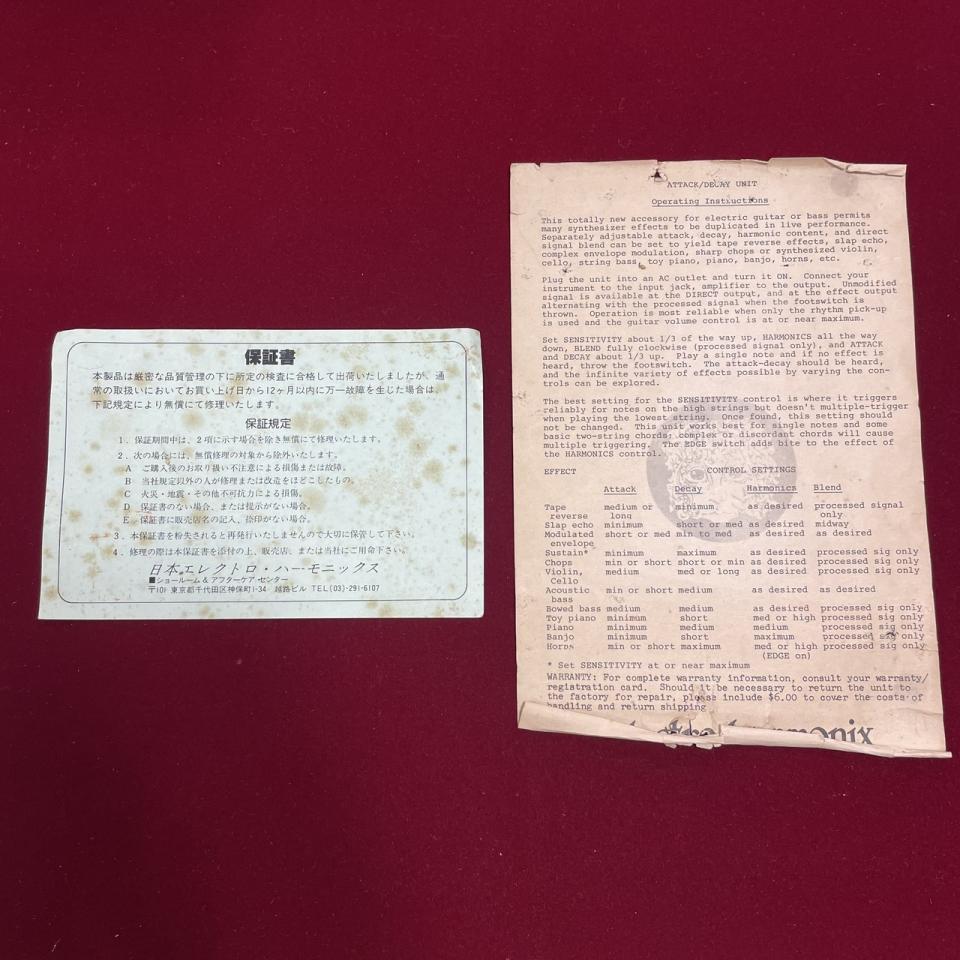 保証書
本製品は厳密な品質管理の下に所定の検査に合格して出荷いたしましたが、通
常の取扱いにおいてお買い上げ日から12ヶ月以内に万一故障を生じた場合は、
下記規定により無償にて修理いたします。
保証規定
1．保証期間中は、2項に示す場合を除き無償にて修理いたします。
2．次の場合には、無償修理の対象から除外いたします。
A ご購入後のお取り扱い不注意による損傷または故障。
B 当社規定以外の人が修理または改造をほどこしたもの。
C 火災・地震・その他不可抗力による損傷。
D 保証書のない場合、または提示がない場合。
E 保証書に販売店名の記入、捺印がない場合。
3．本保証書を紛失されると再発行いたしませんので大切に保管して下さい。
4．修理の際は本保証書を添付の上、販売店、または当社にご用命下さい。
日本エレクトロ・ハーモニックス
■ショールーム＆アフターケア・センター
〒101 東京都千代田区神保町1-34 越路ビル TEL(03)-291-6107
ATTACK/DECAY UNIT
Operating Instructions
This totally new accessory for electric guitar or bass permits
many synthesizer effects to be duplicated in live performance.
Separately adjustable attack, decay, harmonic content, and direct
signal blend can be set to yield tape reverse effects, slap echo,
complex envelope modulation, sharp chops or synthesized violin,
cello, string bass, toy piano, piano, banjo, horns, etc.
Plug the unit into an AC outlet and turn it ON. Connect your
instrument to the input jack, amplifier to the output. Unmodified
signal is available at the DIRECT output, and at the effect output
alternating with the processed signal when the footswitch is
thrown. Operation is most reliable when only the rhythm pick-up
is used and the guitar volume control is at or near maximum.
Set SENSITIVITY about 1/3 of the way up, HARMONICS all the way
down, BLEND fully clockwise (processed signal only), and ATTACK
and DECAY about 1/3 up. Play a single note and if no effect is
heard, throw the footswitch. The attack-decay should be heard,
and the infinite variety of effects possible by varying the con-
trols can be explored.
The best setting for the SENSITIVITY control is where it triggers
reliably for notes on the high strings but doesn't multiple-trigger
when playing the lowest string. Once found, this setting should
not be changed. This unit works best for single notes and some
basic two-string chords; complex or discordant chords will cause
multiple triggering. The EDGE switch adds bite to the effect of
the HARMONICS control.
EFFECT CONTROL SETTINGS
Attack Decay Harmonics Blend
Tape medium or minimum as desired processed signal
reverse long only
Slap echo minimum short or med as desired midway
Modulated short or med min to med as desired as desired
envelope
Sustain* minimum maximum as desired processed sig only
Chops min or short short or min as desired processed sig only
Violin, medium med or long as desired processed sig only
Cello
Acoustic min or short medium as desired as desired
bass
Bowed bass medium medium as desired processed sig only
Toy piano minimum short med or high processed sig only
Piano minimum medium medium processed sig only
Banjo minimum short maximum processed sig only
Horns min or short maximum med or high processed sig only
(EDGE on)
* Set SENSITIVITY at or near maximum
WARRANTY: For complete warranty information, consult your warranty/
registration card. Should it be necessary to return the unit to
the factory for repair, please include $6.00 to cover the costs of
handling and return shipping